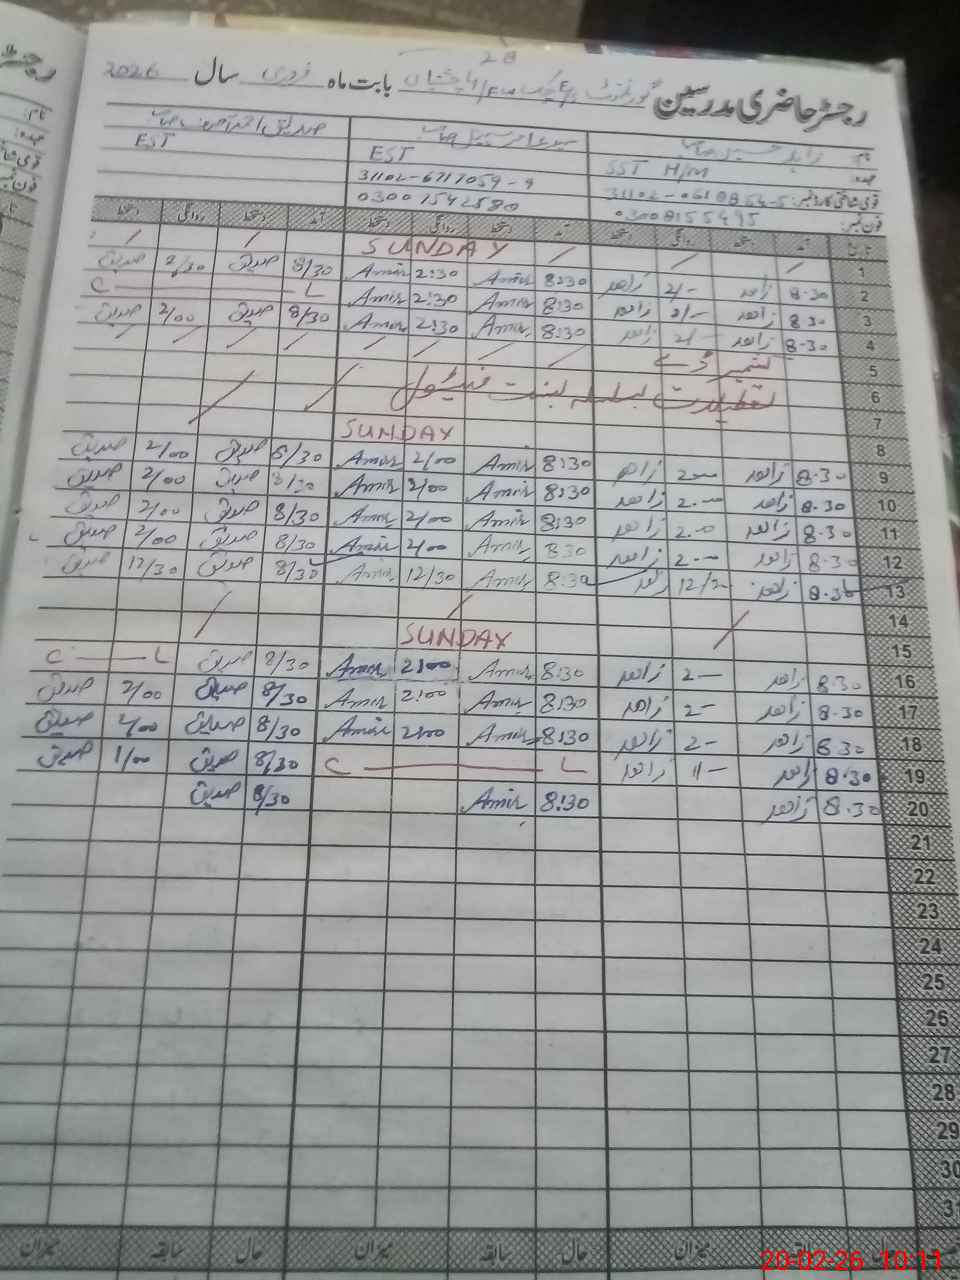 28
رجسٹر حاضری مدرسین گورنمنٹ بابت ماہ فروری سال 2026
نام زاہد حسین صاحب
صدیق احمد صاحب
عہدہ SST H/M EST EST
قومی شناختی کارڈ نمبر: 31102-0618854-5 31102-6717059-9
فون نمبر: 03008155495 03001542580
تاریخ آمد دستخط روانگی دستخط آمد دستخط روانگی دستخط آمد دستخط روانگی دستخط
1 SUNDAY
2 8.30 زاھد 2/- زاھد 8:30 Amir 2:30 Amir 8/30 صدیق 2/30 صدیق
3 8.30 زاھد 2/- زاھد 8:30 Amir 2:30 Amir C L
4 8.30 زاھد 2/- زاھد 8:30 Amir 2:30 Amir 8/30 صدیق 2/00 صدیق
5 کشمیر ڈے
6 تعطیلات بسلسلہ بسنت فیسٹیول
7
8 SUNDAY
9 8.30 زاھد 2.00 زاھد 8:30 Amir 2/00 Amir 8/30 صدیق 2/00 صدیق
10 8.30 زاھد 2.00 زاھد 8:30 Amir 2/00 Amir 8/30 صدیق 2/00 صدیق
11 8.30 زاھد 2.00 زاھد 8:30 Amir 2/00 Amir 8/30 صدیق 2/00 صدیق
12 8.30 زاھد 2.00 زاھد 830 Amir 2/00 Amir 8/30 صدیق 2/00 صدیق
13 8.30 زاھد 12/30 زاھد 8:30 Amir 12/30 Amir 8/30 صدیق 12/30 صدیق
14
15 SUNDAY
16 8.30 زاھد 2- زاھد 8:30 Amir 2:00 Amir 8/30 صدیق C L
17 8.30 زاھد 2- زاھد 8:30 Amir 2:00 Amir 8/30 صدیق 2/00 صدیق
18 8.30 زاھد 2- زاھد 8:30 Amir 2:00 Amir 8/30 صدیق 2/00 صدیق
19 8.30 زاھد 11- زاھد C L 8/30 صدیق 1/00 صدیق
20 8.30 زاھد 8:30 Amir 8/30 صدیق
21
22
23
24
25
26
27
28
29
30
31
حال سابقہ میزان حال سابقہ میزان حال سابقہ میزان
20-02-26 10:11